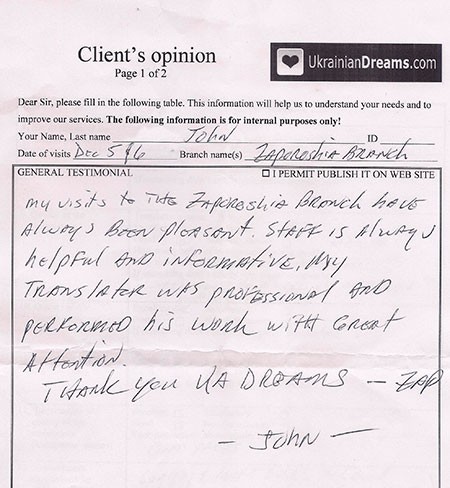 Client's opinion
Page 1 of 2
UkrainianDreams.com
Dear Sir, please fill in the following table. This information will help us to understand your needs and to
improve our services. The following information is for internal purposes only!
Your Name, Last name John ID
Date of visits Dec 5 & 6 Branch name(s) Zaporoshia Branch
GENERAL TESTIMONIAL ☐ I PERMIT PUBLISH IT ON WEB SITE
My visits to the Zaporoshia Branch have
always been pleasant. Staff is always
helpful and informative, my
translater was professional and
performed his work with great
attention.
Thank you UA Dreams — ZAP
— John —